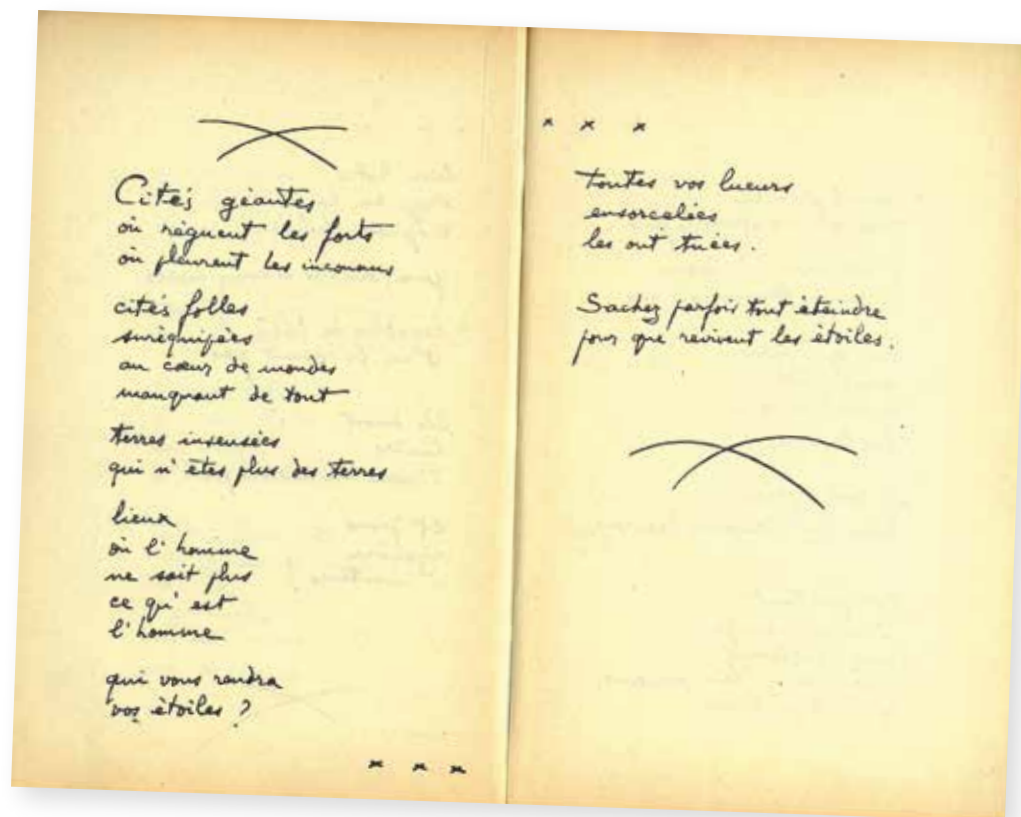 Cités géantes
où règnent les forts
où pleurent les inconnus
cités folles
suréquipées
au cœur de mondes
manquant de tout
terres insensées
qui n'êtes plus des terres
lieux
où l'homme
ne sait plus
ce qu'est
l'homme
qui vous rendra
vos étoiles ?
x x x
x x x
toutes vos lueurs
ensorcelées
les ont tuées.
Sachez parfois tout éteindre
pour que revivent les étoiles.